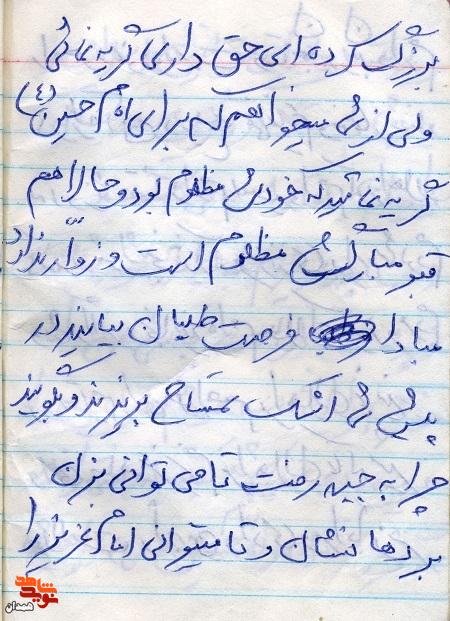 بزرگ کرده ای حق داری گریه نمائی
ولی از شما میخواهم که برای امام حسین (ع)
گریه نمائید که خودش مظلوم بود و حالا هم
قبر مبارکش مظلوم است و زوّار ندارد
مبادا فرصت طلبان بیایند در
پیش شما اشک تمساح بریزند و بگویند
چرا به جبهه رفت تا می توانی بزن
بر دهانشان و تا میتوانی امام عزیز را
نوید شاهد
همدان